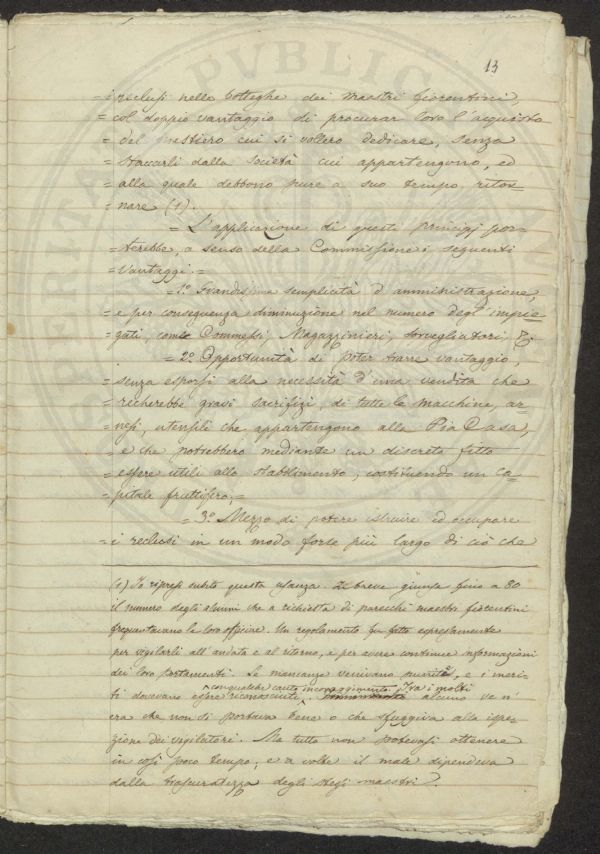 13
= i reclusi nelle botteghe dei maestri fiorentini,
= col doppio vantaggio di procurar loro l'acquisto
= del mestiero cui si vollero dedicare, senza
= staccarli dalla società cui appartengono, ed
= alla quale debbono pure a suo tempo ritor=
= nare (1).
= L'applicazione di questi principj por=
= terebbe, a senso della Commissione i seguenti
= Vantaggi. =
= 1.º Grandissima semplicità d'amministrazione,
= e per conseguenza diminuzione nel numero degl'impie=
= gati, come Commessi, Magazzinieri, Sorvegliatori, &.
= 2.º Opportunità di poter trarre vantaggio,
= senza esporsi alla necessità d'una vendita che
= recherebbe gravi sacrifizi, di tutte le macchine, ar=
= nesi, utensili che appartengono alla Pia Casa,
= e che potrebbero mediante un discreto fitto
= essere utili allo stabilimento, costituendo un ca=
= pitale fruttifero; =
= 3.º Mezzo di potere istruire ed occupare
= i reclusi in un modo forse più largo di ciò che
(1) Io ripresi subito questa usanza. In breve giunse fino a 80
il numero degli alunni che a richiesta di parecchi maestri fiorentini
frequentavano le loro officine. Un regolamento fu fatto espressamente
per vigilarli all'andata e al ritorno, e per avere continue informazioni
dei loro portamenti. Le mancanze venivano punite, e i meri=
con qualche cauto incoraggiamento. Tra i molti
ti dovevano essere riconosciuti alcuno ve n'
era che non si portava bene o che sfuggiva alla ispe=
zione dei vigilatori. Ma tutto non potevasi ottenere
in così poco tempo, e a volte il male dipendeva
dalla trascuratezza degli stessi maestri.